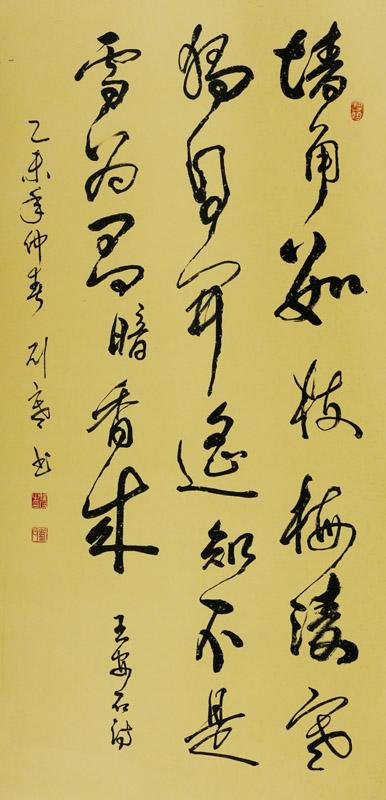 墙角数枝梅凌寒
独自开遥知不是
雪为有暗香来
王安石诗
乙未年仲春 刘 书